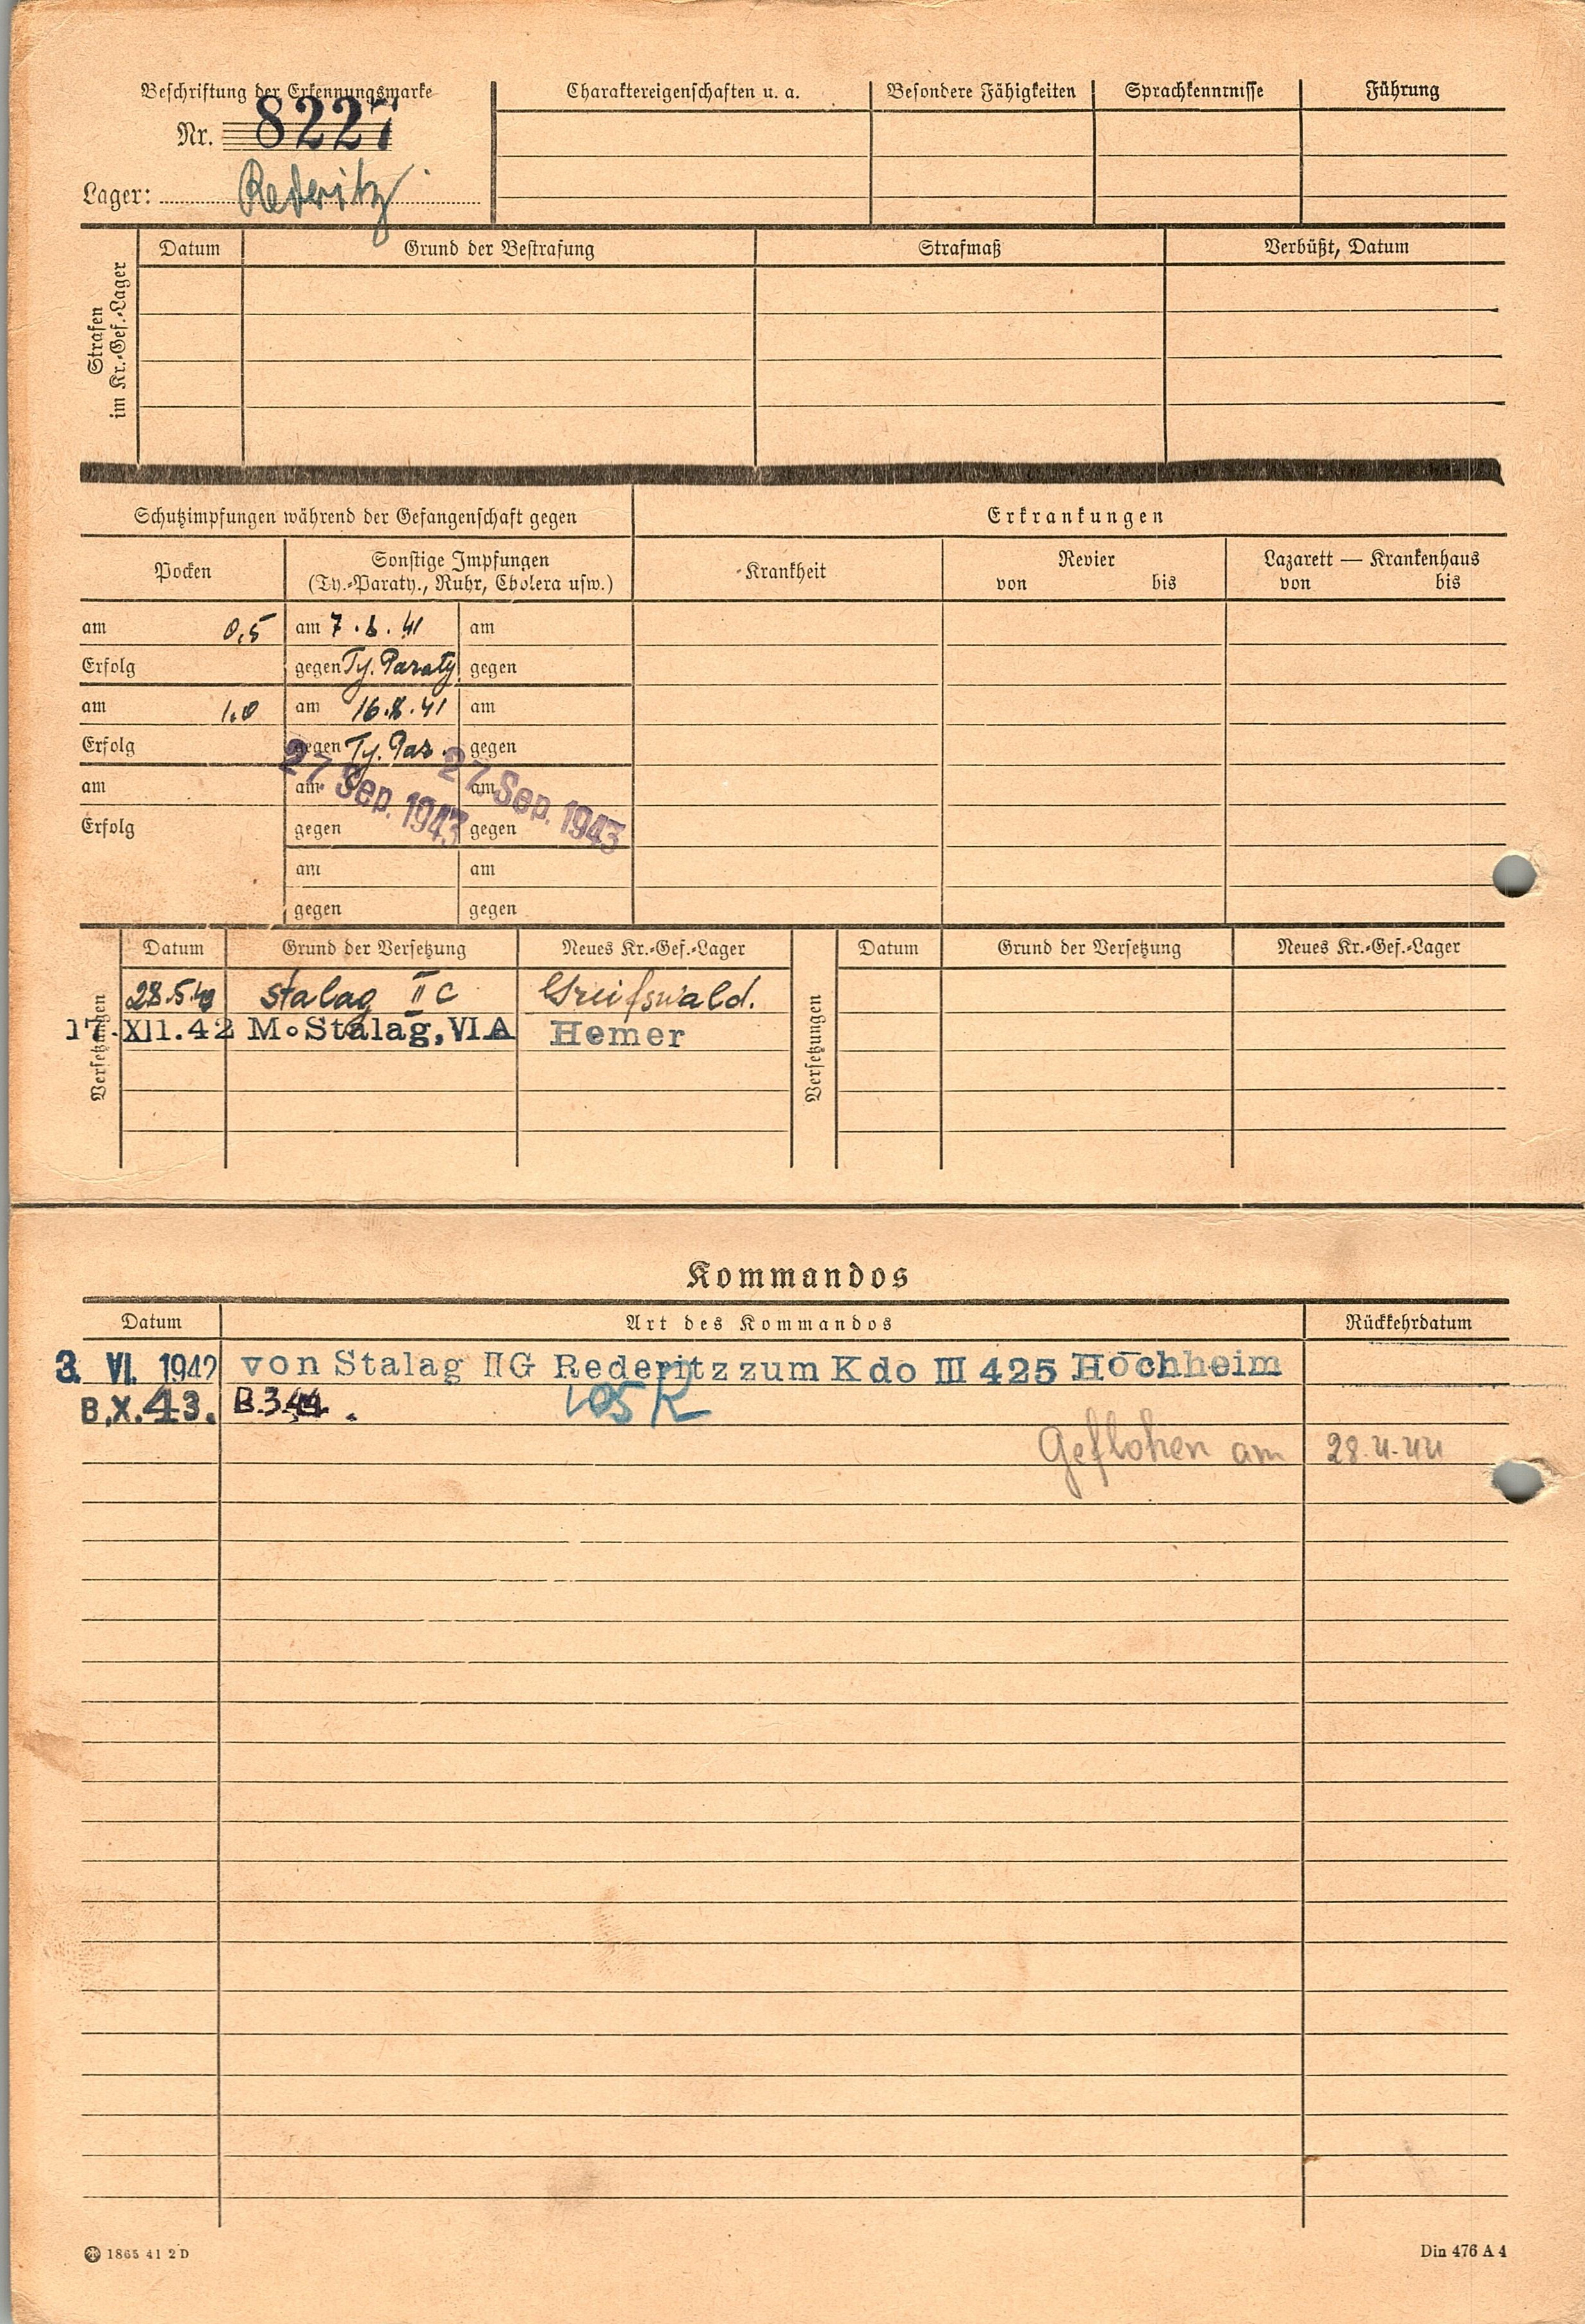 Beschriftung der Erkennungsmarke
Nr. 8227
Lager: Rederitz
Charaktereigenschaften u. a.
Besondere Fähigkeiten
Sprachkenntnisse
Führung
Strafen im Kr.-Gef.-Lager
Datum
Grund der Bestrafung
Strafmaß
Verbüßt, Datum
Schutzimpfungen während der Gefangenschaft gegen
Erkrankungen
Pocken
Sonstige Impfungen
(Ty.-Paraty., Ruhr, Cholera usw.)
Krankheit
Revier
von bis
Lazarett — Krankenhaus
von bis
am 0,5 am 7.8.41 am
Erfolg gegen Ty. Paraty. gegen
am 1,0 am 16.8.41 am
Erfolg gegen Ty. Par. gegen
27. Sep. 1943 27. Sep. 1943
am am am
Erfolg gegen gegen
am am
gegen gegen
Versetzungen
Datum Grund der Versetzung Neues Kr.-Gef.-Lager
28.5. Stalag II C Greifswald.
17.XII.42 M.Stalag, VI A Hemer
Versetzungen
Datum Grund der Versetzung Neues Kr.-Gef.-Lager
Kommandos
Datum Art des Kommandos Rückkehrdatum
3. VI. 1942 von Stalag II G Rederitz zum Kdo III 425 Hochheim
B.X.43.
Geflohen am 28.4.44
1865 41 2 D
Din 476 A 4